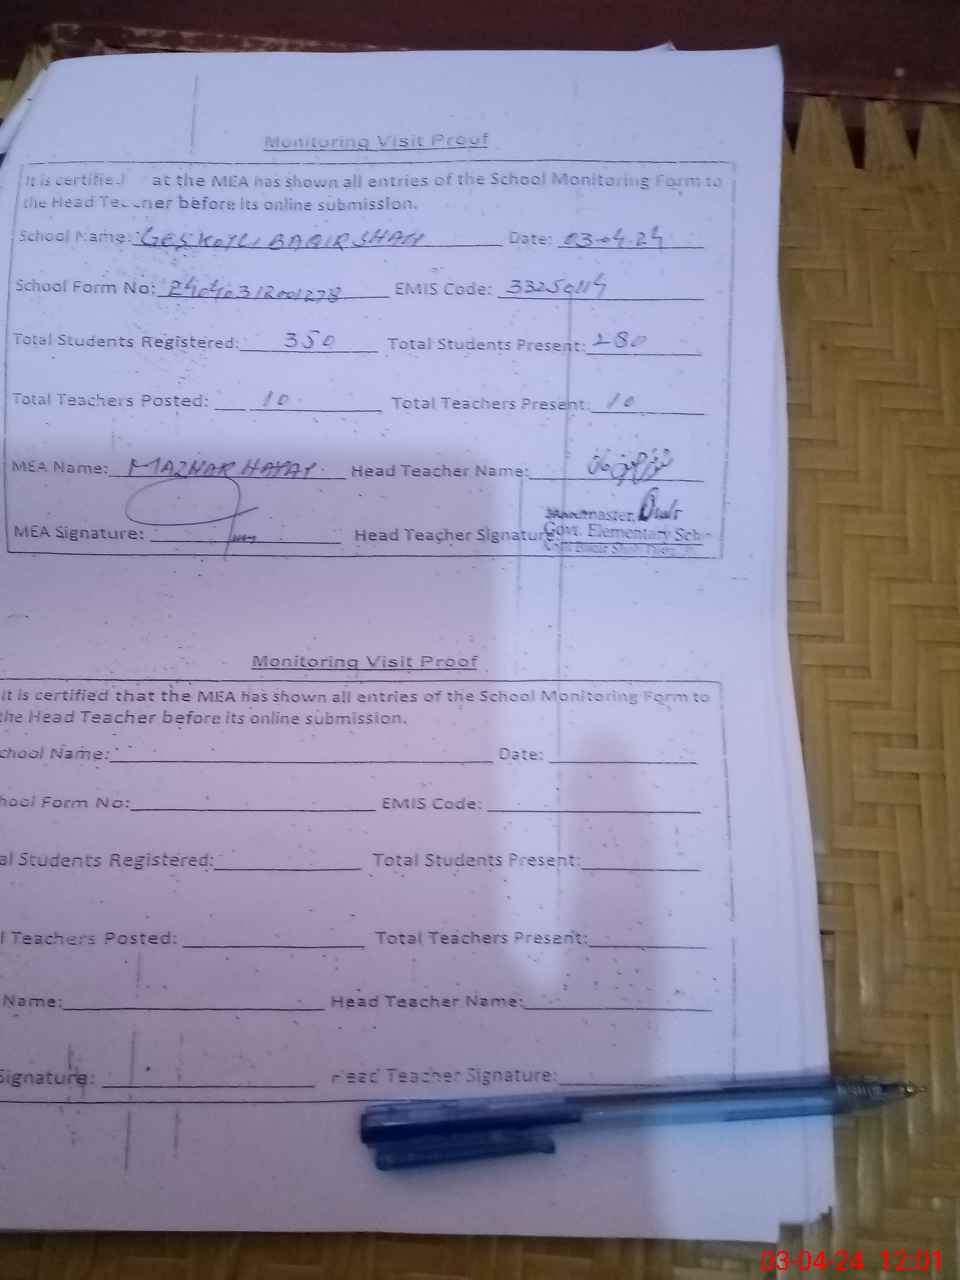 Monitoring Visit Proof
It is certified at the MEA has shown all entries of the School Monitoring Form to
the Head Teacher before its online submission.
School Name: GES KOTLI BAQIR SHAH Date: 03-04-24
School Form No: EMIS Code: 33250114
Total Students Registered: 350 Total Students Present: 280
Total Teachers Posted: 10 Total Teachers Present: 10
MEA Name: MAZHAR HAYAT Head Teacher Name:
Headmaster
MEA Signature: Head Teacher Signature: Govt. Elementary Sch
Monitoring Visit Proof
It is certified that the MEA has shown all entries of the School Monitoring Form to
the Head Teacher before its online submission.
chool Name: Date:
hool Form No: EMIS Code:
al Students Registered: Total Students Present:
l Teachers Posted: Total Teachers Present:
Name: Head Teacher Name:
Signature: Head Teacher Signature:
03-04-24 12:01